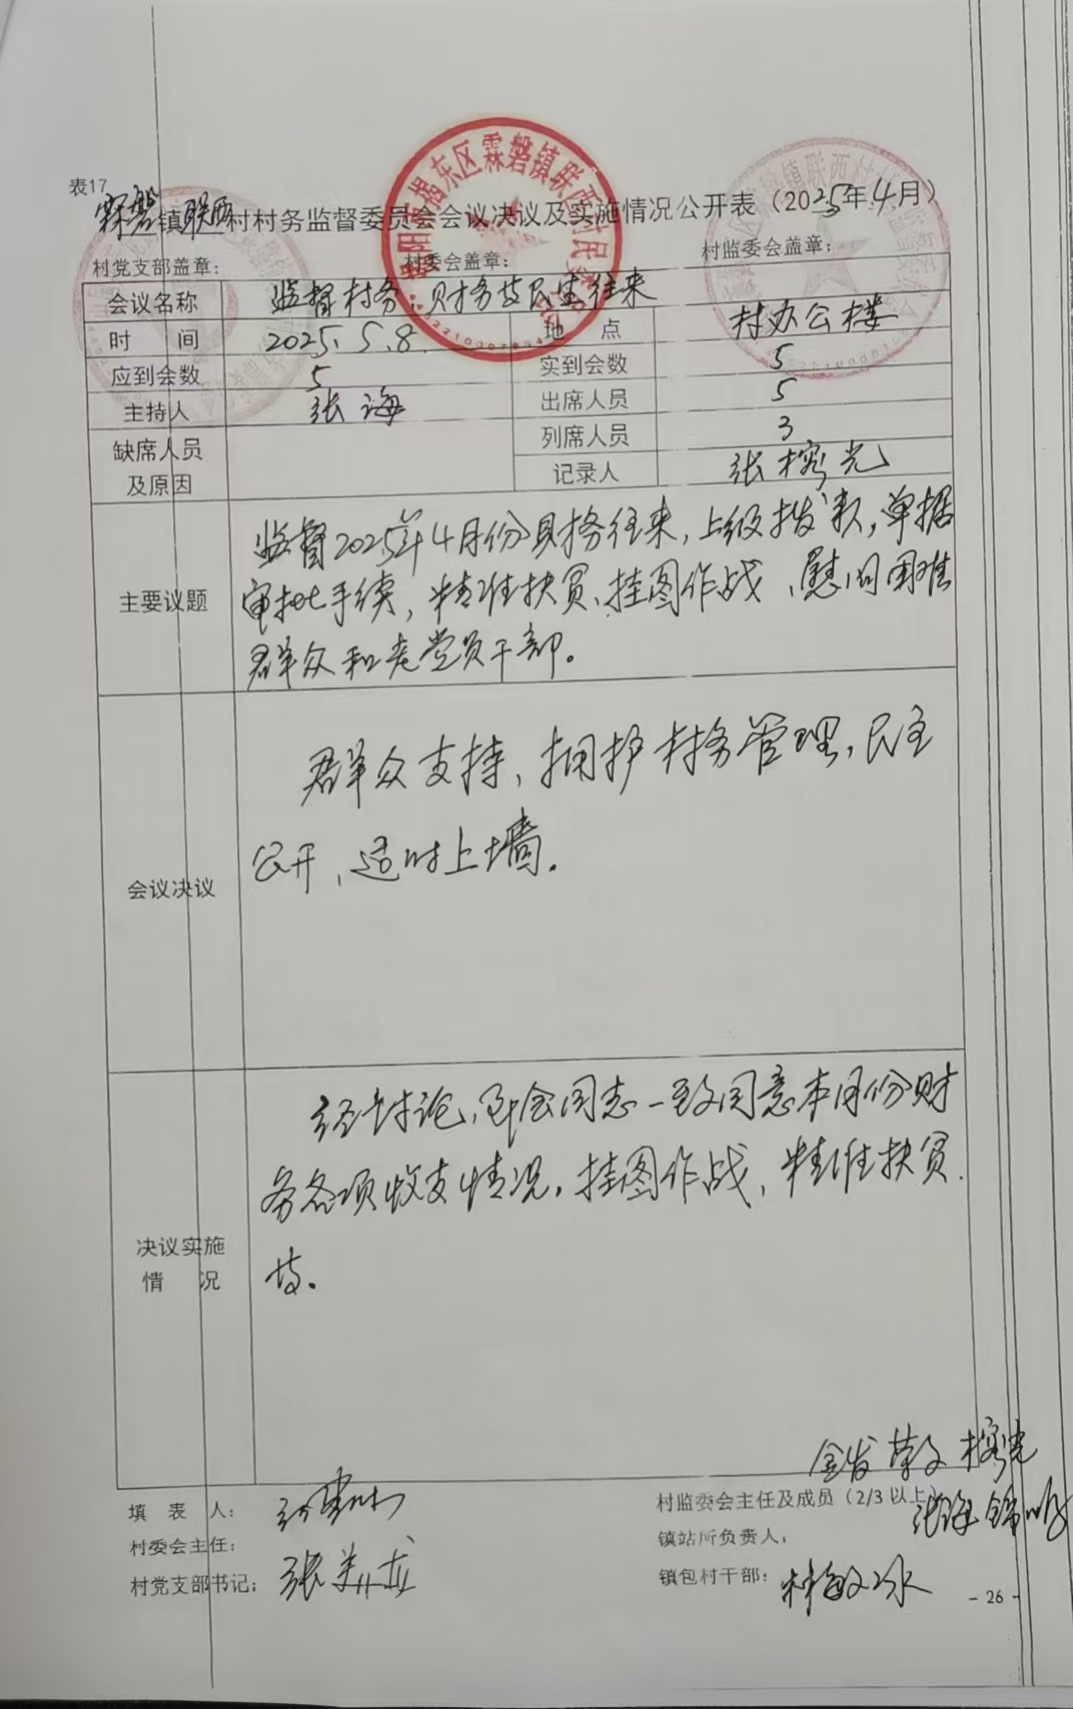 表17
霖磐镇联西村村务监督委员会会议决议及实施情况公开表（2025年4月）
村党支部盖章： 村委会盖章： 村监委会盖章：
揭东区霖磐镇联西村民
会议名称 监督村务、财务与民生往来
时 间 2025.5.8. 地 点 村办公楼
应到会数 5 实到会数 5
主持人 张海 出席人员 5
缺席人员及原因 列席人员 3
记录人 张榕光
主要议题
监督2025年4月份财务往来，上级拨款，单据
审批手续，精准扶贫、挂图作战、慰问困难
群众和老党员干部。
会议决议
群众支持，拥护村务管理，民主
公开，适时上墙。
决议实施
情 况
经讨论，与会同志一致同意本月份财
务各项收支情况。挂图作战，精准扶贫
等。
金发 荣文 榕光
填 表 人： 村监委会主任及成员（2/3以上） 张海
村委会主任： 镇站所负责人：
村党支部书记： 张 镇包村干部：
- 26 -